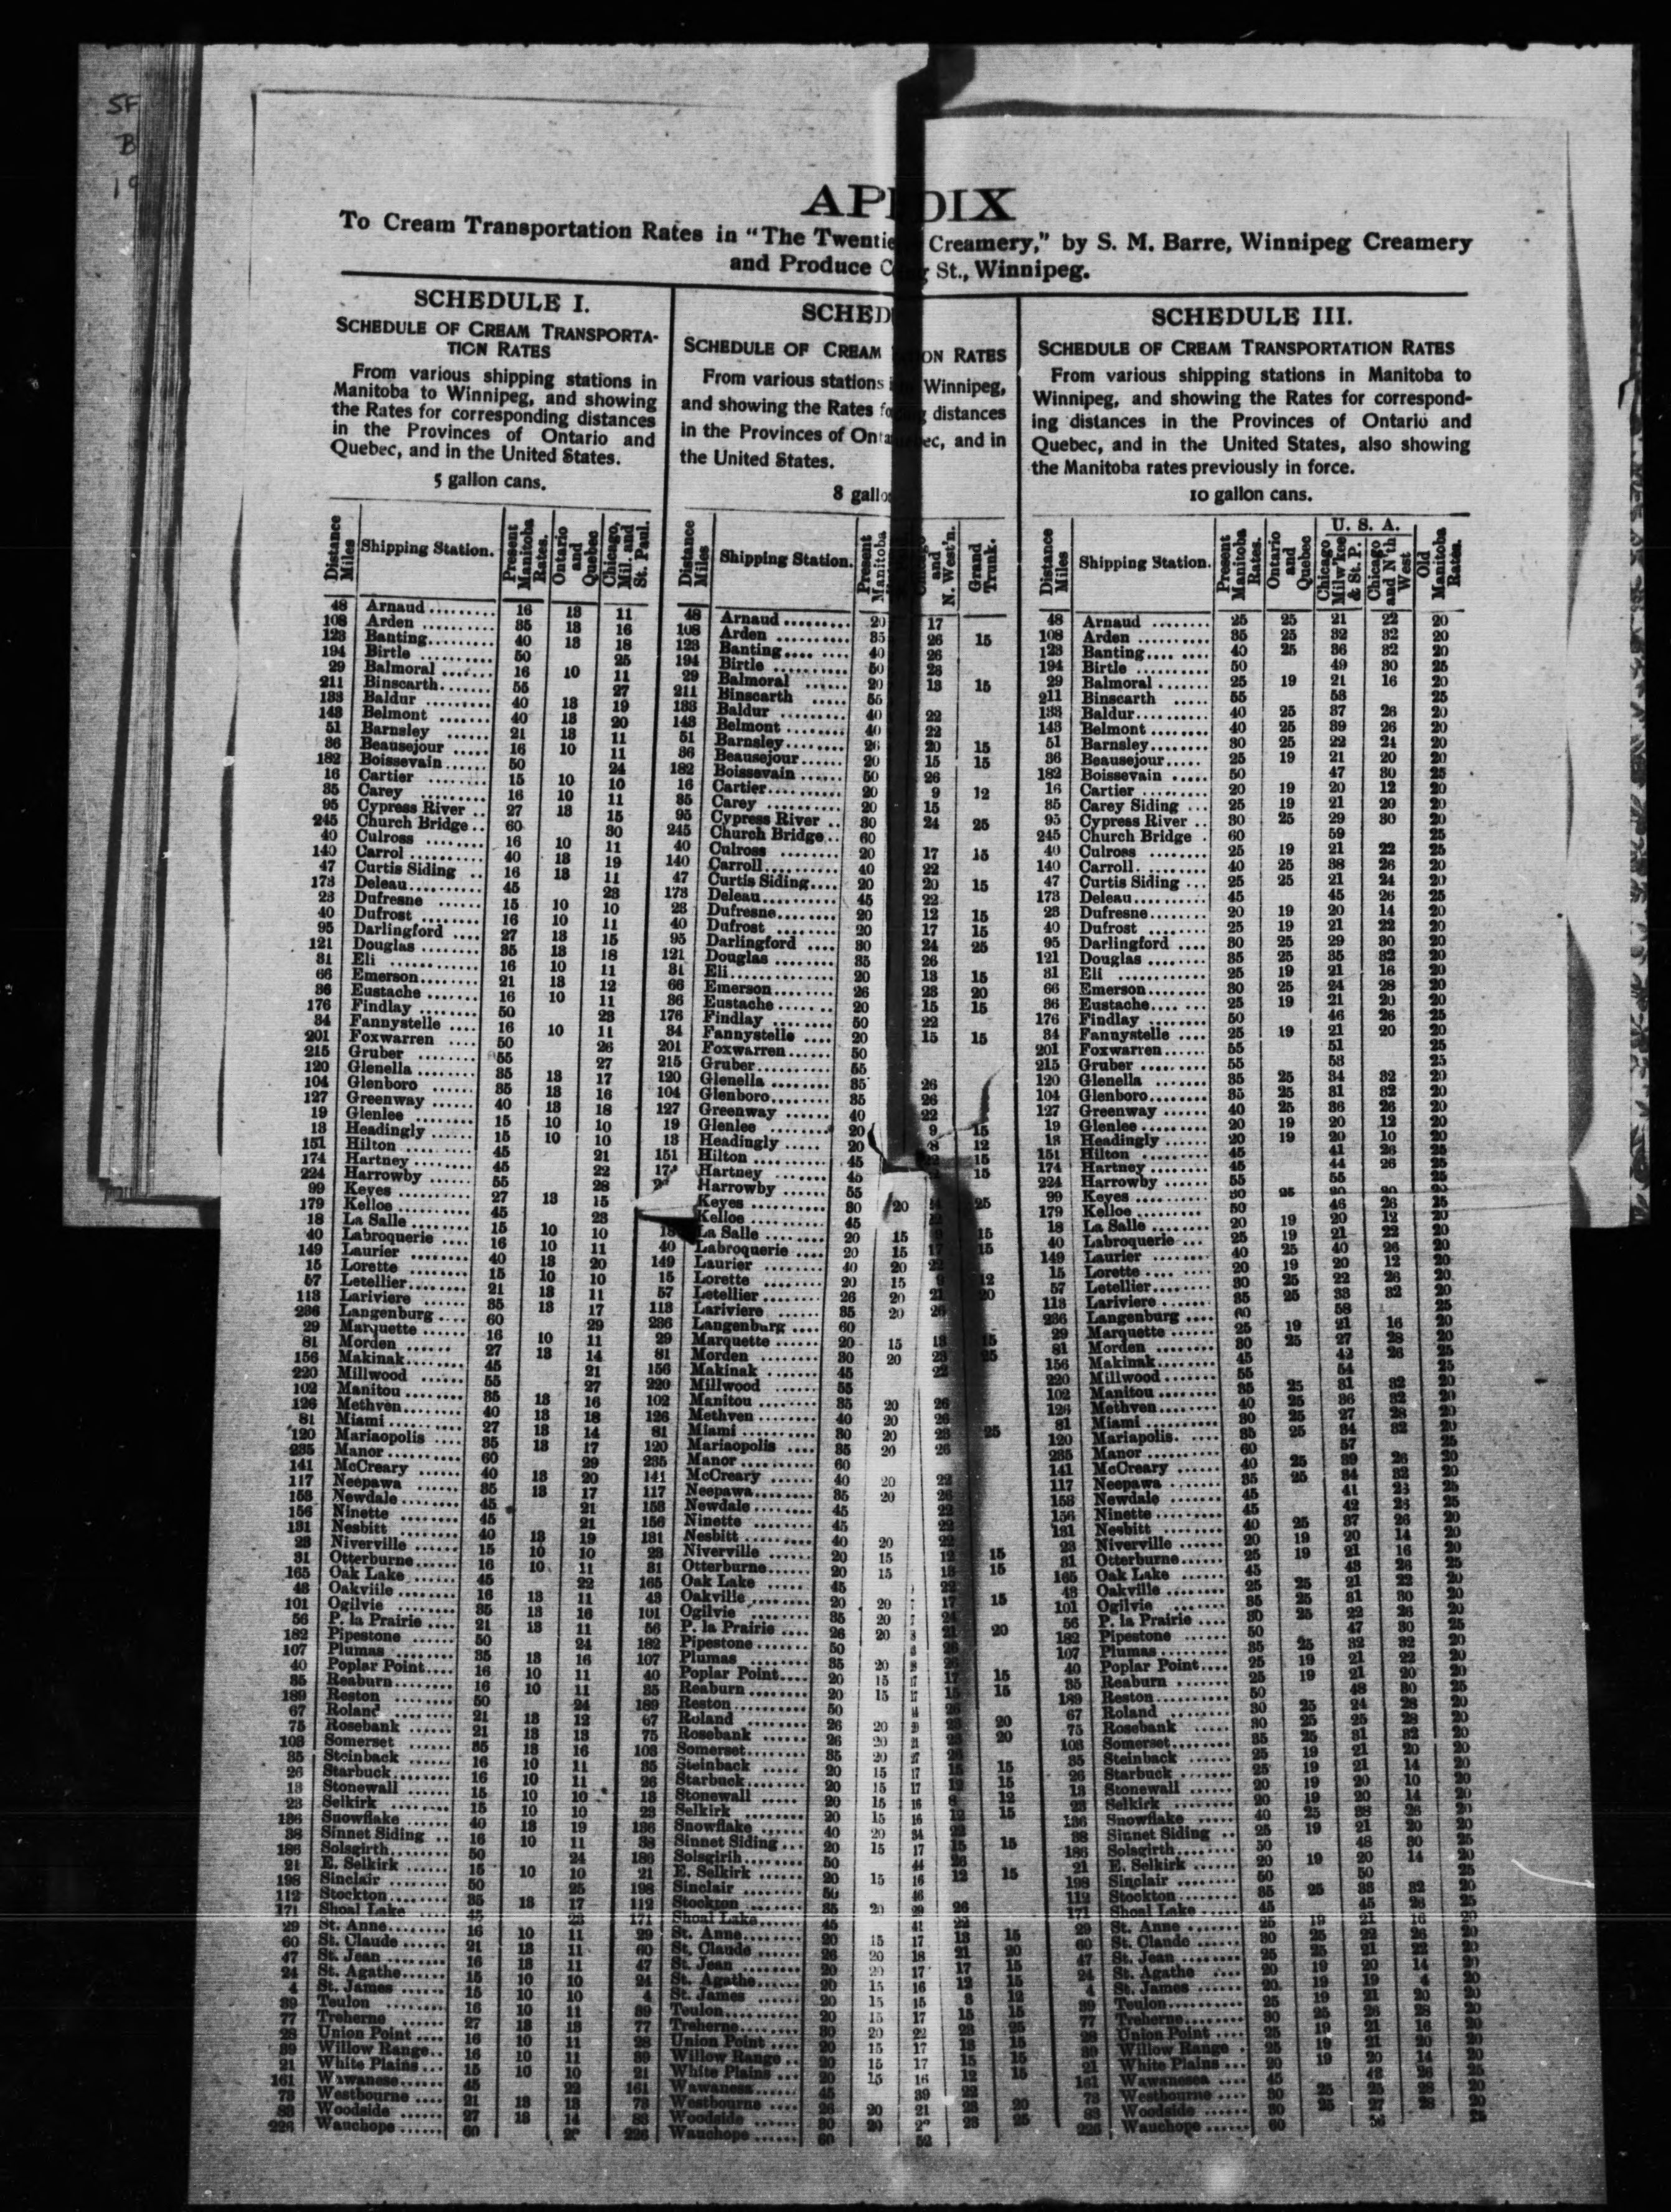 SF
B
19
AP DIX
To Cream Transportation Rates in "The Twentie Creamery," by S. M. Barre, Winnipeg Creamery
and Produce C St., Winnipeg.
SCHEDULE I.
SCHEDULE OF CREAM TRANSPORTA-
TION RATES
From various shipping stations in
Manitoba to Winnipeg, and showing
the Rates for corresponding distances
in the Provinces of Ontario and
Quebec, and in the United States.
5 gallon cans.
Distance Miles Shipping Station. Present Manitoba Rates. Ontario and Quebec Chicago, Mil. and St. Paul.
48 Arnaud 16 13 11
108 Arden 35 13 16
123 Banting 40 13 18
194 Birtle 50 25
29 Balmoral 16 10 11
211 Binscarth 55 27
133 Baldur 40 13 19
143 Belmont 40 13 20
51 Barnsley 21 13 11
36 Beausejour 16 10 11
182 Boissevain 50 24
16 Cartier 15 10 10
35 Carey 16 10 11
95 Cypress River 27 13 15
245 Church Bridge 60 30
40 Culross 16 10 11
140 Carrol 40 13 19
47 Curtis Siding 16 13 11
173 Deleau 45 23
23 Dufresne 15 10 10
40 Dufrost 16 10 11
95 Darlingford 27 13 15
121 Douglas 35 13 18
31 Eli 16 10 11
66 Emerson 21 13 12
36 Eustache 16 10 11
176 Findlay 50 23
34 Fannystelle 16 10 11
201 Foxwarren 50 26
215 Gruber 55 27
120 Glenella 35 13 17
104 Glenboro 35 13 16
127 Greenway 40 13 18
19 Glenlee 15 10 10
13 Headingly 15 10 10
151 Hilton 45 21
174 Hartney 45 22
224 Harrowby 55 28
99 Keyes 27 13 15
179 Kelloe 45 23
18 La Salle 15 10 10
40 Labroquerie 16 10 11
149 Laurier 40 13 20
15 Lorette 15 10 10
57 Letellier 21 13 11
113 Lariviere 35 13 17
236 Langenburg 60 29
29 Marquette 16 10 11
81 Morden 27 13 14
156 Makinak 45 21
220 Millwood 55 27
102 Manitou 35 13 16
126 Methven 40 13 18
81 Miami 27 13 14
120 Mariaopolis 35 13 17
235 Manor 60 29
141 McCreary 40 13 20
117 Neepawa 35 13 17
153 Newdale 45 21
156 Ninette 45 21
131 Nesbitt 40 13 19
23 Niverville 15 10 10
31 Otterburne 16 10 11
165 Oak Lake 45 22
43 Oakville 16 13 11
101 Ogilvie 35 13 16
56 P. la Prairie 21 13 11
182 Pipestone 50 24
107 Plumas 35 13 16
40 Poplar Point 16 10 11
35 Reaburn 16 10 11
189 Reston 50 24
67 Roland 21 13 12
75 Rosebank 21 13 13
103 Somerset 35 13 16
35 Steinback 16 10 11
26 Starbuck 16 10 11
13 Stonewall 15 10 10
23 Selkirk 15 10 10
136 Snowflake 40 13 19
38 Sinnet Siding 16 10 11
186 Solsgirth 50 24
21 E. Selkirk 15 10 10
198 Sinclair 50 25
112 Stockton 35 13 17
171 Shoal Lake 45 23
29 St. Anne 16 10 11
60 St. Claude 21 13 11
47 St. Jean 16 13 11
24 St. Agathe 15 10 10
4 St. James 15 10 10
39 Teulon 16 10 11
77 Treherne 27 13 13
28 Union Point 16 10 11
39 Willow Range 16 10 11
21 White Plains 15 10 10
161 Wawanese 45 22
73 Westbourne 21 13 13
83 Woodside 27 13 14
226 Wauchope 60
SCHED
SCHEDULE OF CREAM ON RATES
From various stations Winnipeg,
and showing the Rates distances
in the Provinces of Onta ec, and in
the United States.
8 gallo
Distance Miles Shipping Station. Present Manitoba and N. West'n. Grand Trunk.
48 Arnaud 20 17
108 Arden 35 26 15
123 Banting 40 26
194 Birtle 50 26
29 Balmoral 20 13 15
211 Binscarth 55
133 Baldur 40 22
143 Belmont 40 22
51 Barnsley 26 20 15
36 Beausejour 20 15 15
182 Boissevain 50 26
16 Cartier 20 9 12
35 Carey 20 15
95 Cypress River 30 24 25
245 Church Bridge 60
40 Culross 20 17 15
140 Carroll 40 22
47 Curtis Siding 20 20 15
173 Deleau 45 22
23 Dufresne 20 12 15
40 Dufrost 20 17 15
95 Darlingford 30 24 25
121 Douglas 35 26
31 Eli 20 13 15
66 Emerson 26 23 20
36 Eustache 20 15 15
176 Findlay 50 22
34 Fannystelle 20 15 15
201 Foxwarren 50
215 Gruber 55
120 Glenella 35 26
104 Glenboro 35 26
127 Greenway 40 22
19 Glenlee 20 9 15
13 Headingly 20 8 12
151 Hilton 45 15
Hartney 45 15
Harrowby 55
Keyes 30 20 25
Kelloe 45
La Salle 20 15 15
40 Labroquerie 20 15 17 15
149 Laurier 40 20 22
15 Lorette 20 15 12
57 Letellier 26 20 21 20
113 Lariviere 35 20 26
236 Langenburg 60
29 Marquette 20 15 13 15
81 Morden 30 20 23 25
156 Makinak 45 22
220 Millwood 55
102 Manitou 35 20 26
126 Methven 40 20 26
81 Miami 30 20 23 25
120 Mariaopolis 35 20 26
235 Manor 60
141 McCreary 40 20 22
117 Neepawa 35 20 26
153 Newdale 45 22
156 Ninette 45 22
131 Nesbitt 40 20 22
23 Niverville 20 15 12 15
31 Otterburne 20 15 13 15
165 Oak Lake 45 22
43 Oakville 20 20 17 15
101 Ogilvie 35 20 24
56 P. la Prairie 26 20 21 20
182 Pipestone 50 26
107 Plumas 35 20 26
40 Poplar Point 20 15 17 17 15
35 Reaburn 20 15 17 15 15
189 Reston 50 26
67 Roland 26 20 23 20
75 Rosebank 26 20 21 23 20
103 Somerset 35 20 27 26
35 Steinback 20 15 17 15 15
26 Starbuck 20 15 17 12 15
13 Stonewall 20 15 16 8 12
23 Selkirk 20 15 16 12 15
136 Snowflake 40 20 34 22
38 Sinnet Siding 20 15 17 15 15
186 Solsgirth 50 44 26
21 E. Selkirk 20 15 16 12 15
198 Sinclair 50 46
112 Stockton 35 20 29 26
171 Shoal Lake 45 41 22
29 St. Anne 20 15 17 13 15
60 St. Claude 26 20 18 21 20
47 St. Jean 20 20 17 17 15
24 St. Agathe 20 15 16 12 15
4 St. James 20 15 15 8 12
39 Teulon 20 15 17 15 15
77 Treherne 30 20 22 23 25
28 Union Point 20 15 17 13 15
39 Willow Range 20 15 17 15 15
21 White Plains 20 15 16 12 15
161 Wawanesa 45 39 22
73 Westbourne 26 20 21 23 20
83 Woodside 30 20 23 25
226 Wauchope 60 52
SCHEDULE III.
SCHEDULE OF CREAM TRANSPORTATION RATES
From various shipping stations in Manitoba to
Winnipeg, and showing the Rates for correspond-
ing distances in the Provinces of Ontario and
Quebec, and in the United States, also showing
the Manitoba rates previously in force.
10 gallon cans.
U. S. A.
Distance Miles Shipping Station. Present Manitoba Rates. Ontario and Quebec Chicago Milw'kee & St. P. Chicago and N'th West Old Manitoba Rates.
48 Arnaud 25 25 21 22 20
108 Arden 35 25 32 32 20
123 Banting 40 25 36 32 20
194 Birtle 50 49 30 25
29 Balmoral 25 19 21 16 20
211 Binscarth 55 53 25
133 Baldur 40 25 37 26 20
143 Belmont 40 25 39 26 20
51 Barnsley 30 25 22 24 20
36 Beausejour 25 19 21 20 20
182 Boissevain 50 47 30 25
16 Cartier 20 19 20 12 20
35 Carey Siding 25 19 21 20 20
95 Cypress River 30 25 29 30 20
245 Church Bridge 60 59 25
40 Culross 25 19 21 22 25
140 Carroll 40 25 38 26 20
47 Curtis Siding 25 25 21 24 20
173 Deleau 45 45 26 25
23 Dufresne 20 19 20 14 20
40 Dufrost 25 19 21 22 20
95 Darlingford 30 25 29 30 20
121 Douglas 35 25 35 32 20
31 Eli 25 19 21 16 20
66 Emerson 30 25 24 28 20
36 Eustache 25 19 21 20 20
176 Findlay 50 46 26 25
34 Fannystelle 25 19 21 20 20
201 Foxwarren 55 51 25
215 Gruber 55 53 25
120 Glenella 35 25 34 32 20
104 Glenboro 35 25 31 32 20
127 Greenway 40 25 36 26 20
19 Glenlee 20 19 20 12 20
13 Headingly 20 19 20 10 20
151 Hilton 45 41 26 25
174 Hartney 45 44 26 25
224 Harrowby 55 55 25
99 Keyes 30 25 30 30 20
179 Kelloe 50 46 26 25
18 La Salle 20 19 20 12 20
40 Labroquerie 25 19 21 22 20
149 Laurier 40 25 40 26 20
15 Lorette 20 19 20 12 20
57 Letellier 30 25 22 26 20
113 Lariviere 35 25 33 32 20
236 Langenburg 60 58 25
29 Marquette 25 19 21 16 20
81 Morden 30 25 27 28 20
156 Makinak 45 42 26 25
220 Millwood 55 54 25
102 Manitou 35 25 31 32 20
126 Methven 40 25 36 32 20
81 Miami 30 25 27 28 20
120 Mariapolis 35 25 34 32 20
235 Manor 60 57 25
141 McCreary 40 25 39 26 20
117 Neepawa 35 25 34 32 20
153 Newdale 45 41 25
156 Ninette 45 42 26 25
131 Nesbitt 40 25 37 26 20
23 Niverville 20 19 20 14 20
31 Otterburne 25 19 21 16 20
165 Oak Lake 45 43 26 25
43 Oakville 25 25 21 22 20
101 Ogilvie 35 25 31 30 20
56 P. la Prairie 30 25 22 26 20
182 Pipestone 50 47 30 25
107 Plumas 35 25 32 32 20
40 Poplar Point 25 19 21 22 20
35 Reaburn 25 19 21 20 20
189 Reston 50 48 30 25
67 Roland 30 25 24 28 20
75 Rosebank 30 25 25 28 20
103 Somerset 35 25 31 32 20
35 Steinback 25 19 21 20 20
26 Starbuck 25 19 21 14 20
13 Stonewall 20 19 20 10 20
23 Selkirk 20 19 20 14 20
136 Snowflake 40 25 38 26 20
38 Sinnet Siding 25 19 21 20 20
186 Solsgirth 50 48 30 25
21 E. Selkirk 20 19 20 14 20
198 Sinclair 50 50 25
112 Stockton 35 25 33 32 20
171 Shoal Lake 45 45 26 25
29 St. Anne 25 19 21 16 20
60 St. Claude 30 25 22 26 20
47 St. Jean 25 25 21 22 20
24 St. Agathe 20 19 20 14 20
4 St. James 20 19 19 4 20
39 Teulon 25 19 21 20 20
77 Treherne 30 25 26 28 20
28 Union Point 25 19 21 16 20
39 Willow Range 25 19 21 20 20
21 White Plains 20 19 20 14 20
161 Wawanesea 45 43 26 25
73 Westbourne 30 25 25 28 20
83 Woodside 30 25 27 28 20
226 Wauchope 60 56 25